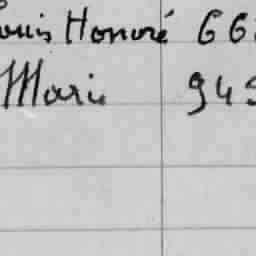 ouis Honoré 66
Marie 94